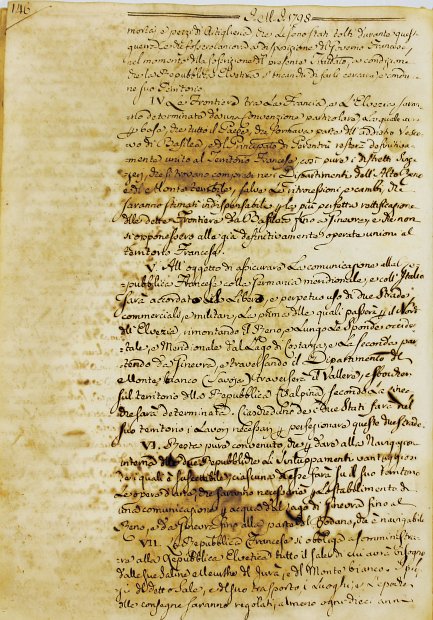 146
1798
mortai, e pezzi di Artiglieria che le sono stati tolti durante quest
guerra e che fossero ancora a disposizione del Governo Francese
nel momento della soscrizione del presente trattato, a condizione
che la Repubblica Elvetica s'incarichi di farli cercare e condurre
nel suo Territorio.
IV. Le Frontiere tra la Francia, e l'Elvezia saran
no determinate da una Convenzione particolare, la quale avrà
per base, che tutto il Paese, che formava parte dell'antico Vesco
vado di Basilea, e del Principato di Porentrù resterà definitiva
mente unito al Territorio Francese, così pure i distretti Sviz
zeri, che si trovano compresi nei Dipartimenti dell'Alto Reno
e di Monte Terribile, salve le ritrocessioni, e cambi che
saranno stimati indispensabili per la più perfetta rettificazione
delle dette Frontiere da Basilea fino a Ginevra, e che non
si opponessero alle già definitivamente operate unioni al
territorio Francese.
V. All'oggetto di assicurare le comunicazioni della
Repubblica Francese colla Germania meridionale, e coll'Italia
sarà accordato il libero, e perpetuo uso di due Strade
commerciali, e militari, la prima delle quali passerà per il Nord
dell'Elvezia rimontando il Reno, e lungo le Sponde occiden
tale, e Meridionale del Lago di Costanza, e la seconda par
tendo da Ginevra, e traversando il Dipartimento del
Monte bianco (Savoja) traverserà il Vallese,
sul territorio della Repubblica Cisalpina, secondo la
che sarà determinata. Ciascheduno dei due Stati farà nel
suo territorio i lavori necessari per perfezionare queste due strade.
VI. Resta pure convenuto, che per dare alla Navigazion
interna delle due Repubbliche li Sviluppamenti vantaggiosi
dei quali è suscettibile, ciascuna di esse farà su il suo territorio
le opere d'arte, che saranno necessarie per lo stabilimento di
una comunicazione per acqua dal Lago di Ginevra fino al
Reno, e da Ginevra fino alla parte del Rodano, che è navigabile
VII. La Repubblica Francese si obbliga a somministra
re alla Repubblica Elvetica tutto il sale, di cui avrà bisogno
dalle sue saline e Meurthe del Jura, e del Monte bianco.
del detto Sale, e del suo trasporto, i luoghi, e l'epoche
delle consegne saranno regolati almeno ogni dieci anni